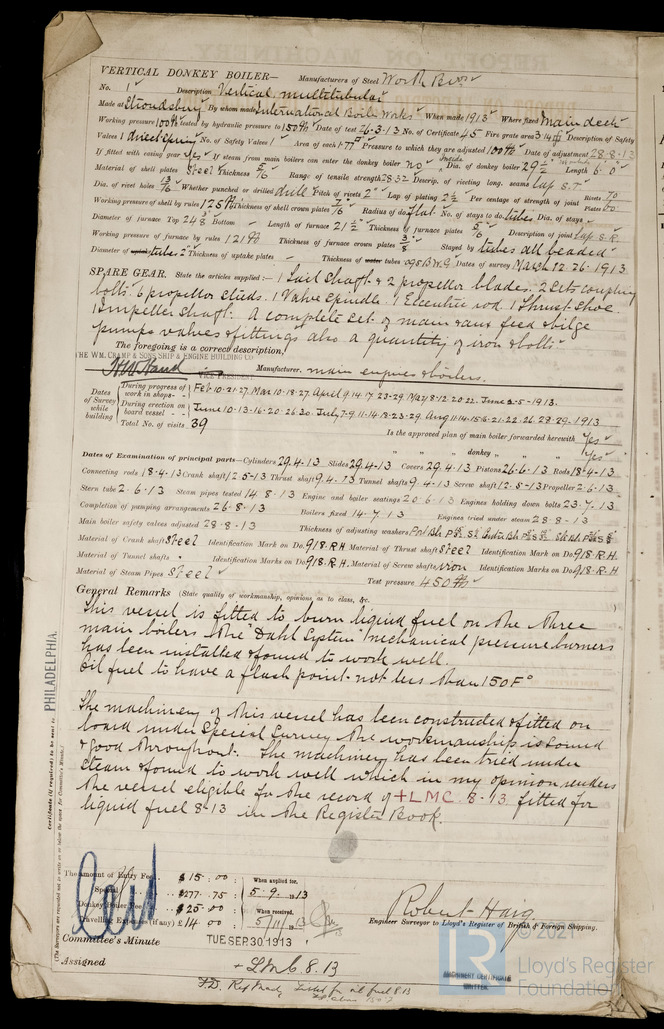 VERTICAL DONKEY BOILER— Manufacturers of Steel Worth Bros
No. 1 Description Vertical multitubular
Made at Stroudsburg By whom made International Boiler Works When made 1913 Where fixed Main deck
Working pressure 100 lb tested by hydraulic pressure to 150 lb Date of test 26-3-13 No. of Certificate 45 Fire grate area 3.14 Description of Safety
Valves 1 direct spring No. of Safety Valves 1 Area of each 1.77 Pressure to which they are adjusted 100 lb Date of adjustment 28-8-13
If fitted with easing gear yes If steam from main boilers can enter the donkey boiler no Inside Dia. of donkey boiler 29½" Length 6'.0"
Material of shell plates Steel Thickness 5/16 Range of tensile strength 28-32 Descrip. of riveting long. seams Lap S.T.
Dia. of rivet holes 13/16 Whether punched or drilled drill Pitch of rivets 2" Lap of plating 2½ Per centage of strength of joint Rivets 70 Plates 60
Working pressure of shell by rules 125 lb Thickness of shell crown plates 7/16 Radius of do. flat No. of stays to do. tubes Dia. of stays
Diameter of furnace Top 24 3/8 Bottom Length of furnace 21½" Thickness of furnace plates 5/16 Description of joint Lap S.R.
Working pressure of furnace by rules 121 lb Thickness of furnace crown plates 3/8 Stayed by tubes all beaded
Diameter of tubes 2" Thickness of uptake plates Thickness of water tubes .095 B.W.G Dates of survey March 12.26-1913
SPARE GEAR. State the articles supplied:— 1 Tail shaft & 2 propellor blades. 2 sets coupling
bolts. 6 propellor studs. 1 Valve spindle. 1 Eccentric rod. 1 Thrust shoe.
1 Impeller shaft. A complete set of main & aux feed & bilge
pumps valves & fittings also a quantity of iron & bolts.
The foregoing is a correct description,
THE WM. CRAMP & SONS SHIP & ENGINE BUILDING CO
VICE PRESIDENT. Manufacturer. main engines & boilers.
Dates of Survey while building
During progress of work in shops- - Feb 10-21-27 Mar 10-18-27 April 9-14-17-23-29 May 8-12-20-22 June 3-5-1913.
During erection on board vessel - - June 10-13-16-20-26-30 July 7-9-11-14-18-23-29 Aug 11-14-15-16-21-22-26-28-29-1913
Total No. of visits 39
Is the approved plan of main boiler forwarded herewith Yes
" " " donkey " " Yes
Dates of Examination of principal parts—Cylinders 29.4.13 Slides 29.4.13 Covers 29.4.13 Pistons 26.6.13 Rods 18-4-13
Connecting rods 18-4-13 Crank shaft 12-5-13 Thrust shaft 9.4.13 Tunnel shafts 9.4.13 Screw shaft 12-5-13 Propeller 2-6-13
Stern tube 2-6-13 Steam pipes tested 14-8-13 Engine and boiler seatings 20-6-13 Engines holding down bolts 23.7.13
Completion of pumping arrangements 26-8-13 Boilers fixed 14-7-13 Engines tried under steam 28-8-13
Main boiler safety valves adjusted 28-8-13 Thickness of adjusting washers
Material of Crank shaft Steel Identification Mark on Do. 918.RH Material of Thrust shaft Steel Identification Mark on Do. 918.R.H
Material of Tunnel shafts " Identification Marks on Do. 918.R.H. Material of Screw shafts iron Identification Marks on Do. 918.R.H
Material of Steam Pipes Steel Test pressure 450 lb
General Remarks (State quality of workmanship, opinions as to class, &c.
This vessel is fitted to burn liquid fuel on the three
main boilers & the "Dahl System" Mechanical pressure burners
has been installed & found to work well.
Oil fuel to have a flash point not less than 150 F°
The machinery of this vessel has been constructed & fitted on
board under Special Survey the workmanship is sound
& good throughout. The machinery has been tried under
steam & found to work well which in my opinion renders
the vessel eligible for the record of +LMC. 8-13. fitted for
liquid fuel 8-13 in the Register Book.
Certificate (if required) to be sent to PHILADELPHIA.
(The Surveyors are requested not to write on or below the space for Committee's Minute.)
The amount of Entry Fee .. $ 15 : 00 : When applied for,
Special .. $277 : 75 : 5-9-1913
Donkey Boiler Fee .. $ 25 : 00 : When received,
Travelling Expenses (if any) £ 14 : 00 : 5/11/1913
Robert Haig
Engineer Surveyor to Lloyd's Register of British & Foreign Shipping.
Committee's Minute TUE SEP 30 1913
Assigned + LMC 8.13
MACHINERY CERTIFICATE WRITTEN
© 2021
LR
Lloyd's Register
Foundation